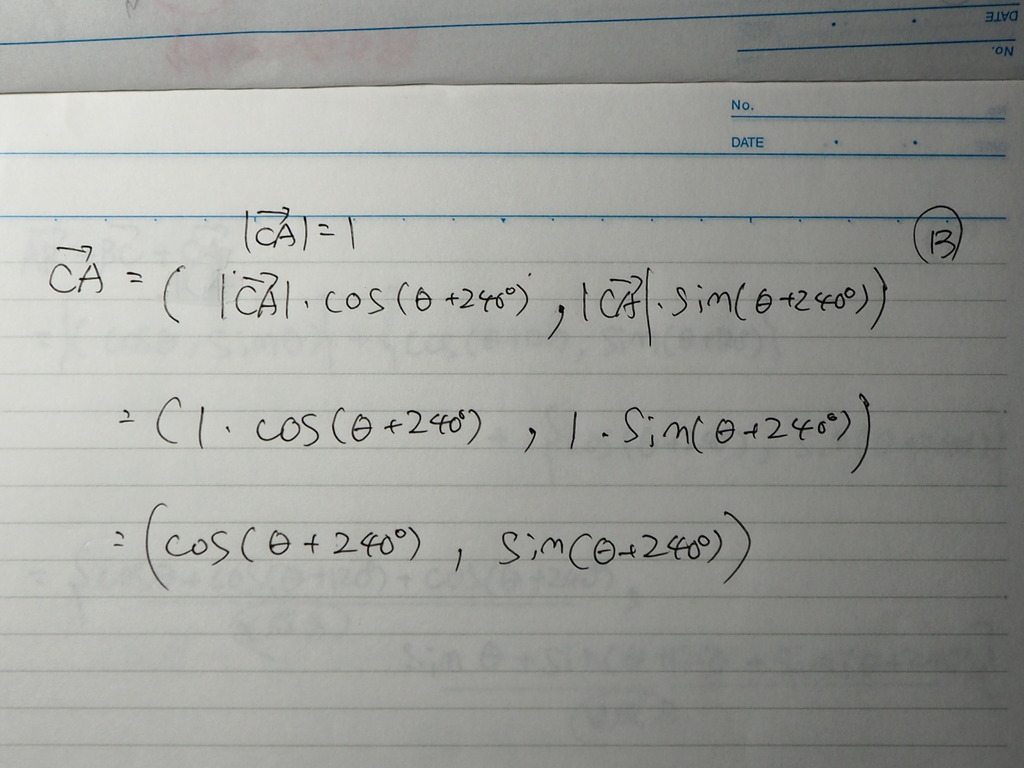 DATE
No.
No.
DATE
|CA→| = 1
⑬
CA→ = ( |CA→| · cos(θ+240°) , |CA→| · sin(θ+240°) )
= ( 1 · cos(θ+240°) , 1 · sin(θ+240°) )
= ( cos(θ+240°) , sin(θ+240°) )